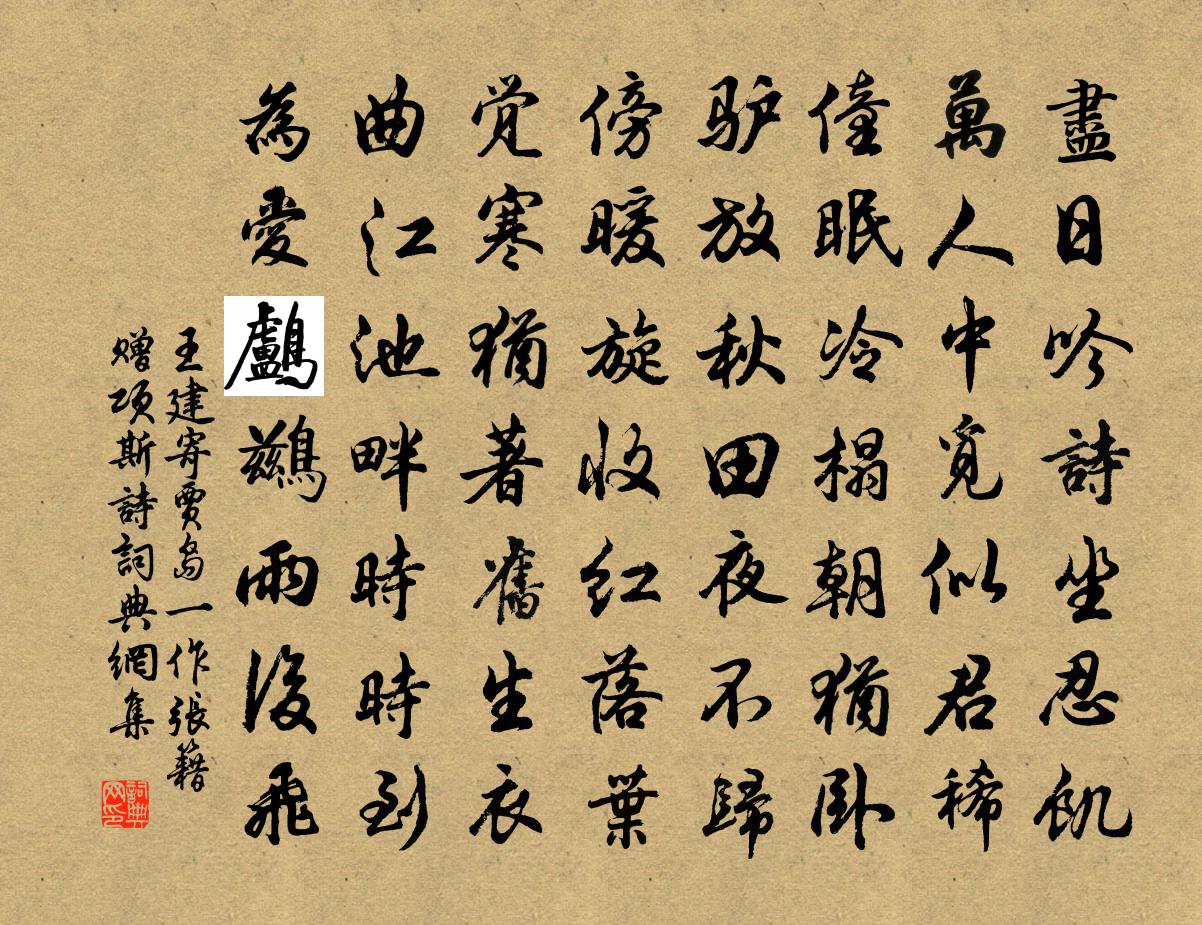 盡日吟詩坐忍飢
萬人中覓似君稀
僮眠冷榻朝猶臥
驴放秋田夜不歸
傍暖旋收红落葉
觉寒猶著舊生衣
曲江池畔時時到
為愛鸕鷀雨後飛
王建寄賈島一作張籍
赠项斯詩詞典網集
詞典网印